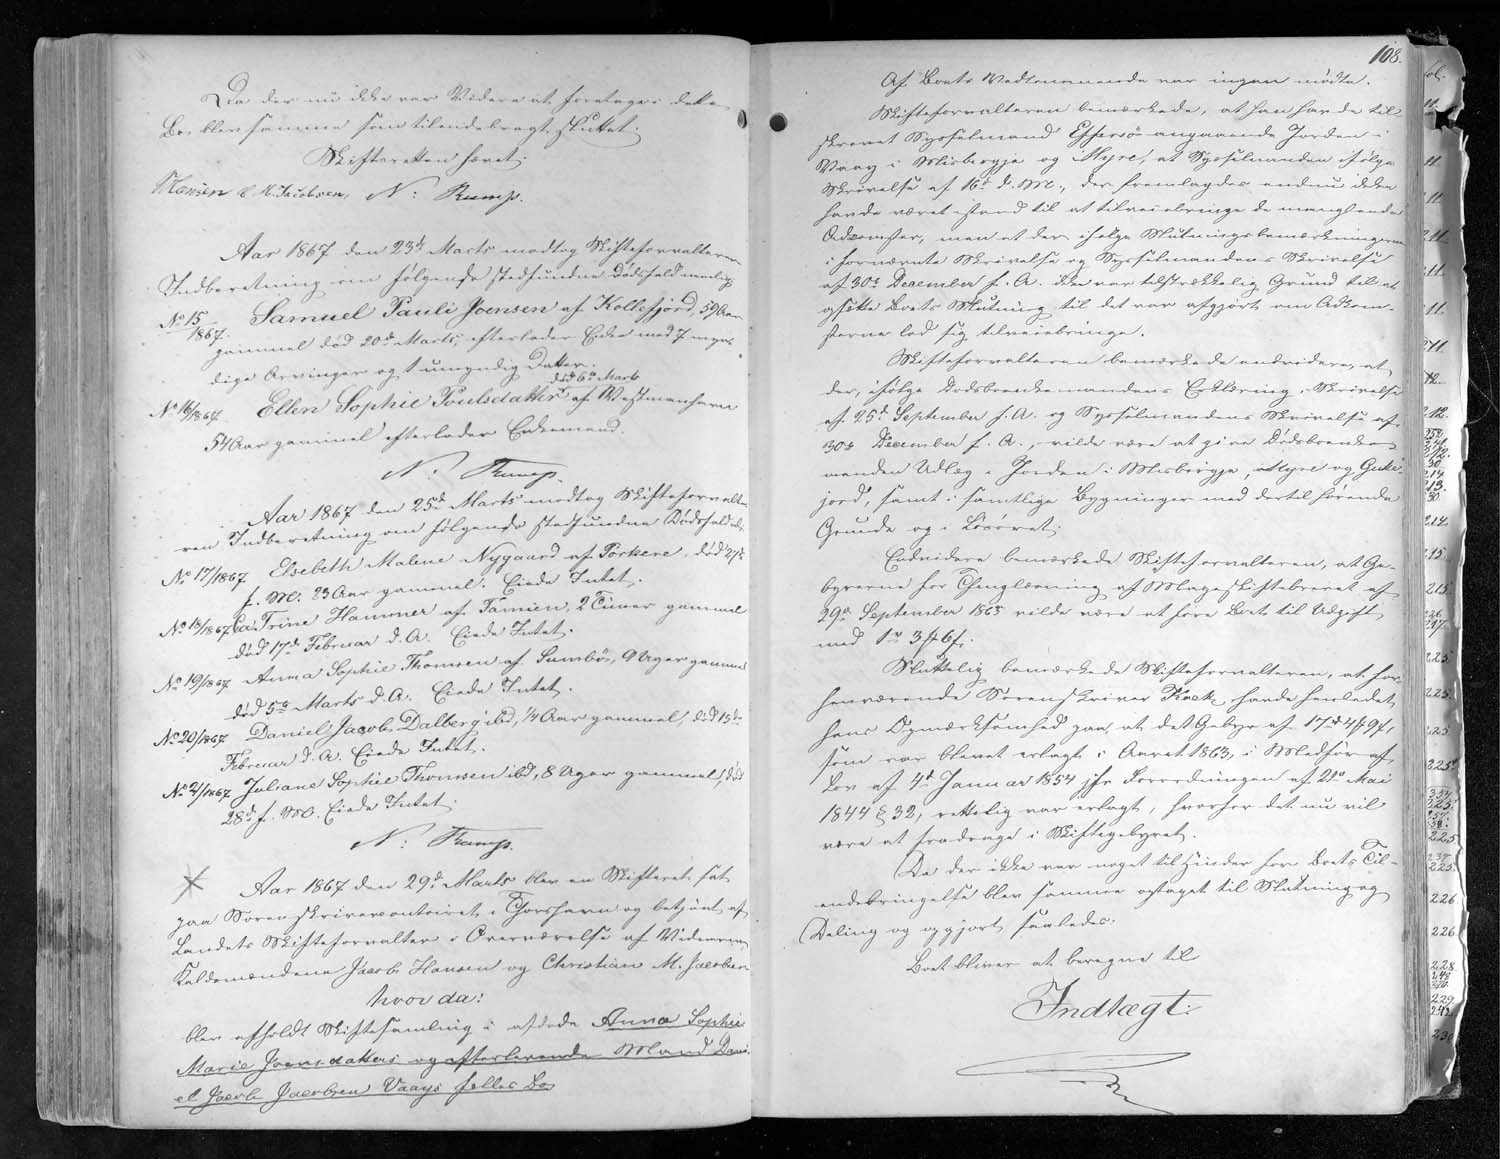 Da der nu ikke var Videre at foretage i dette
Bo, blev samme som tilendebragt sluttet.
Skifteretten hævet.
Hansen C. M. Jacobsen, N: Rump.
Aar 1867 den 23de Marts modtog Skifteforvalteren
Indberetning om følgende stedfundne Dødsfald nemlig
No 15/1867. Samuel Pauli Joensen af Kollefjord, 59 Aar
gammel død 20de Marts, efterlader Enke med 7 myn
dige Arvinger og 1 umyndig Datter.
No 16/1867. Ellen Sophie Poulsdatter død 6te Marts af Westmanhavn
54 Aar gammel efterlader Enkemand.
N: Rump.
Aar 1867 den 25de Marts modtog Skifteforvalte
ren Indberetning om følgende stedfundne Dødsfald
No 17/1867 Elsebeth Malene Nygaard af Porkere, død 27de
f. M. 23 Aar gammel. Eiede Intet.
No 18/1867 Trine Hammer af Famien, 2 Timer gammel
død 17de Februar d. A. Eiede Intet.
No 19/1867 Anna Sophie Thomsen af Sumbø, 9 Uger gammel
død 5te Marts d. A. Eiede Intet.
No 20/1867 Daniel Jacob Dalberg ibd, 1/4 Aar gammel, død 13de
Februar d. A. Eiede Intet.
No 21/1867 Juliane Sophie Thomsen ibd, 8 Uger gammel, død
28de f. M. Eiede Intet.
N: Rump.
Aar 1867 den 29de Marts blev en Skifteret sat
paa Sorenskrivercontoiret i Thorshavn og betjent af
Landets Skifteforvalter i Overværelse af Vidnerne
Kaldsmændene Jacob Hansen og Christian M. Jacobsen
hvor da:
blev afholdt Skiftesamling i afdøde Anna Sophie
Marie Joensdatters og efterlevende Mand Dani
el Jacob Jacobsen Vaags fælles Bo
108.
Af Boets Vedkommende var ingen mødte.
Skifteforvalteren bemærkede, at han havde til
skrevet Sysselmand Effersøe angaaende Jorden i
Vaag i Misbryggja og Myre, at Sysselmanden ifølge
Skrivelse af 16de d. M., der fremlagdes endnu ikke
havde været istand til at tilveiebringe de manglende
Adkomster, men at der ifølge Slutningsbemærkningerne
i fornævnte Skrivelse og Sysselmandens Skrivelse
af 30te December f. A. ikke var tilstrækkelig Grund til at
opsætte Boets Slutning til det var afgjort om Adkom-
sterne lod sig tilveiebringe.
Skifteforvalteren bemærkede endvidere, at
der, ifølge Dødsboenkemandens Erklæring i Skrivelse
af 25de September f. A. og Sysselmandens Skrivelse af
30te December f. A., vilde være at give Dødsboenke
manden Udlæg i Jorden i Misbryggja, Myre og
jord, samt i samtlige Bygninger med dertil hørende
Grunde og i Løsøret.
Endvidere bemærkede Skifteforvalteren, at Ge-
byrerne for Thinglæsning af Mageskiftebrevet af
29de September 1865 vilde være at føre Boet til Udgift
med 1 rd 3 ß 6 f.
Sluttelig bemærkede Skifteforvalteren, at for-
henværende Sørenskriver Kock havde henledet
hans Opmærksomhed paa, at det Gebyr af 17 rd 4 ß 9 f,
som var blevet erlagt i Aaret 1863, i Medfør af
Lov af 4de Januar 1854 jfr Forordningen af 21de Mai
1844 § 32, rettelig var erlagt, hvorfor det nu vil
være at fradrage i Skiftegebyret.
Da der ikke var noget til Hinder for Boets Til-
endebringelse blev samme optaget til Slutning og
Deling og opgjort saaledes.
Boet bliver at beregne til
Indtægt: